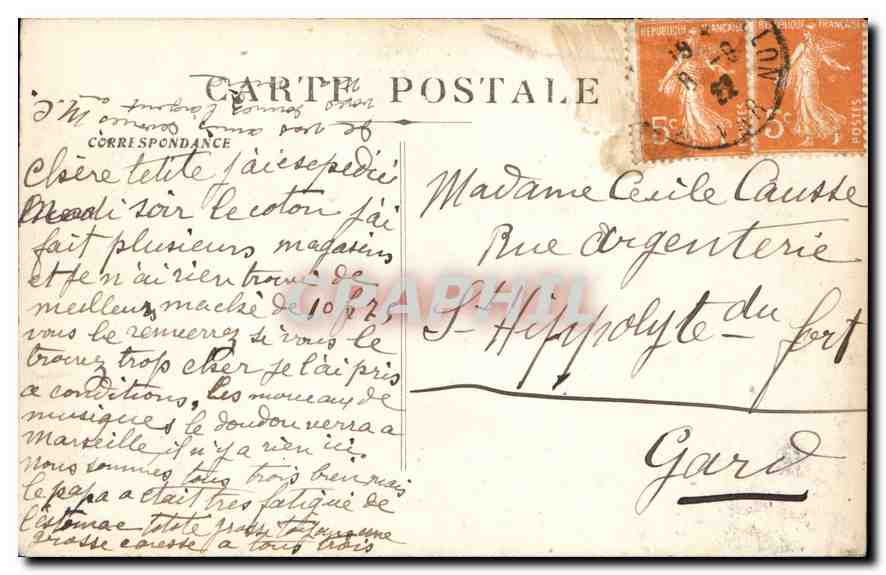 CARTE POSTALE
CORRESPONDANCE
REPUBLIQUE FRANÇAISE
5c
REPUBLIQUE FRANÇAISE
POSTES
5c
Chère tetite j'ai esepedié
soir le coton j'ai
fait plusieurs magasins
et je n'ai rien trouvé de
meilleur maché de 10 f 25
vous le remerrez si vous le
trouvez trop cher je l'ai pris
a conditions, les morceaux de
musique le doudou verra a
Marseille il n'y a rien ici.
nous sommes tous trois bien mais
le papa a était tres fatigué de
l'estomac totote grosse
grosse caresse a tous trois
vous donner l'argent
Madame Cecile Causse
Rue Argenterie
St Hippolyte du fort
Gard
CPAPHIL